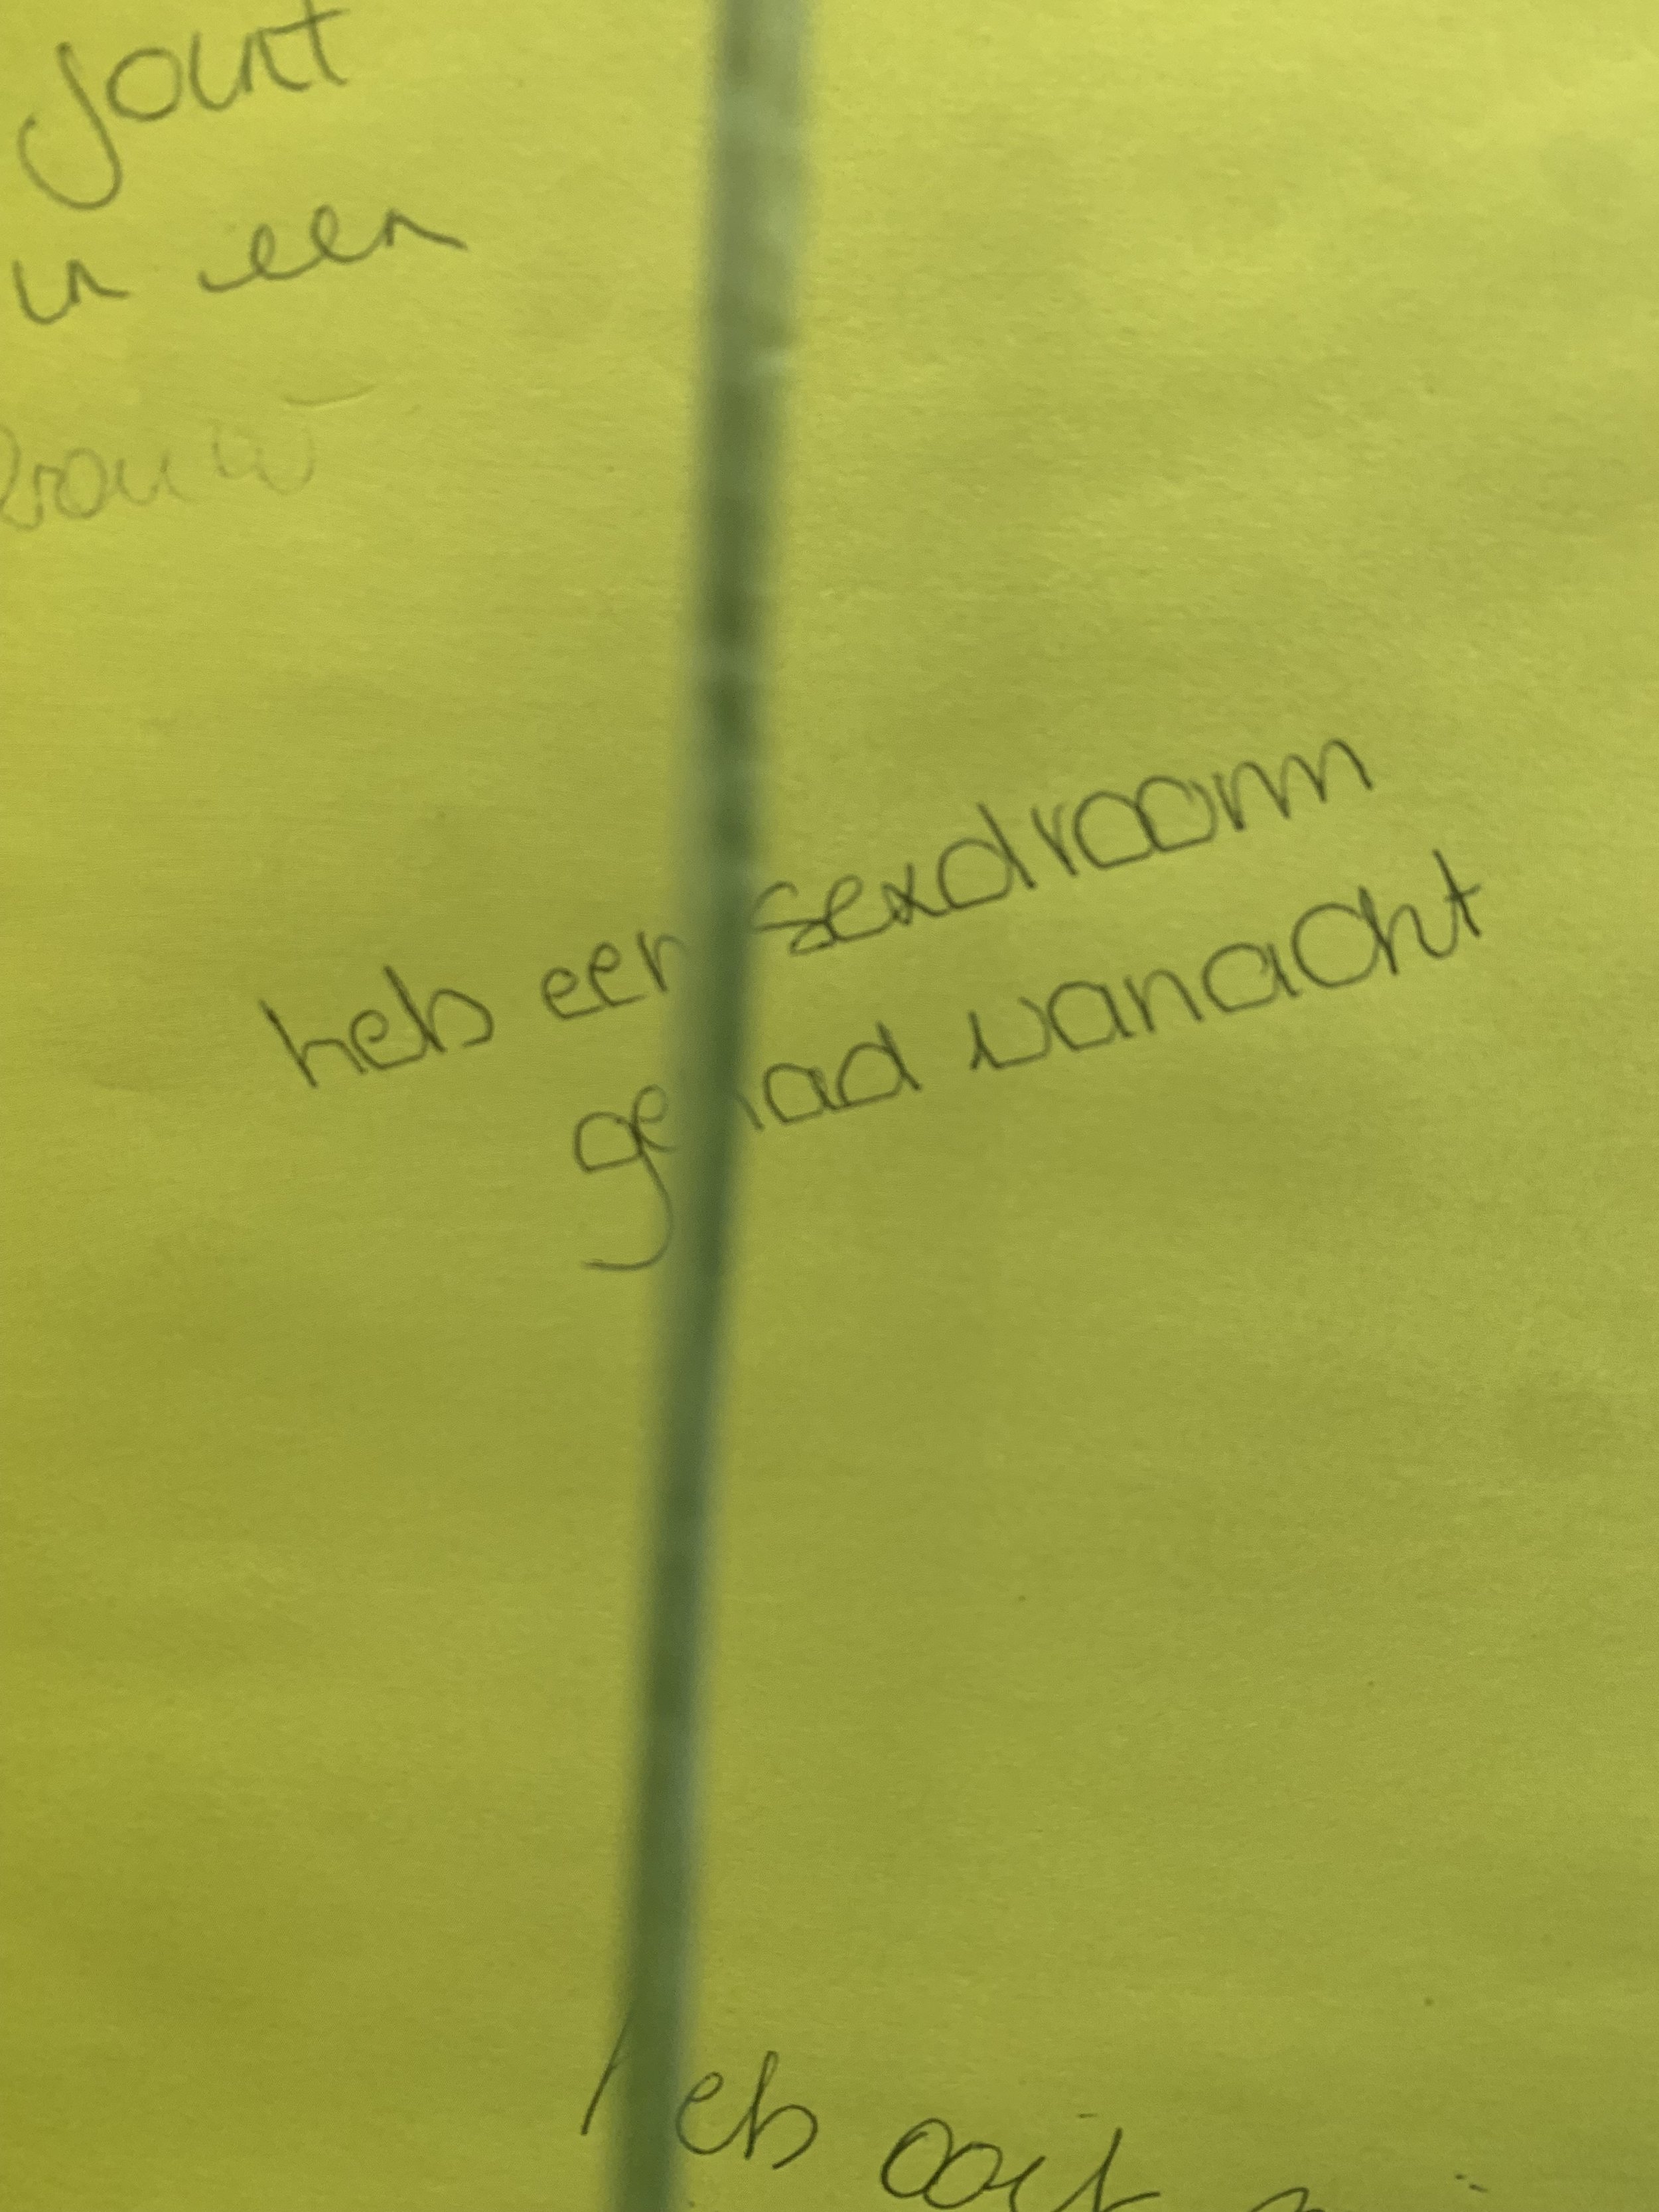 joint
in een
vrouw
heb een sexdroom
gehad vanacht
heb ooit